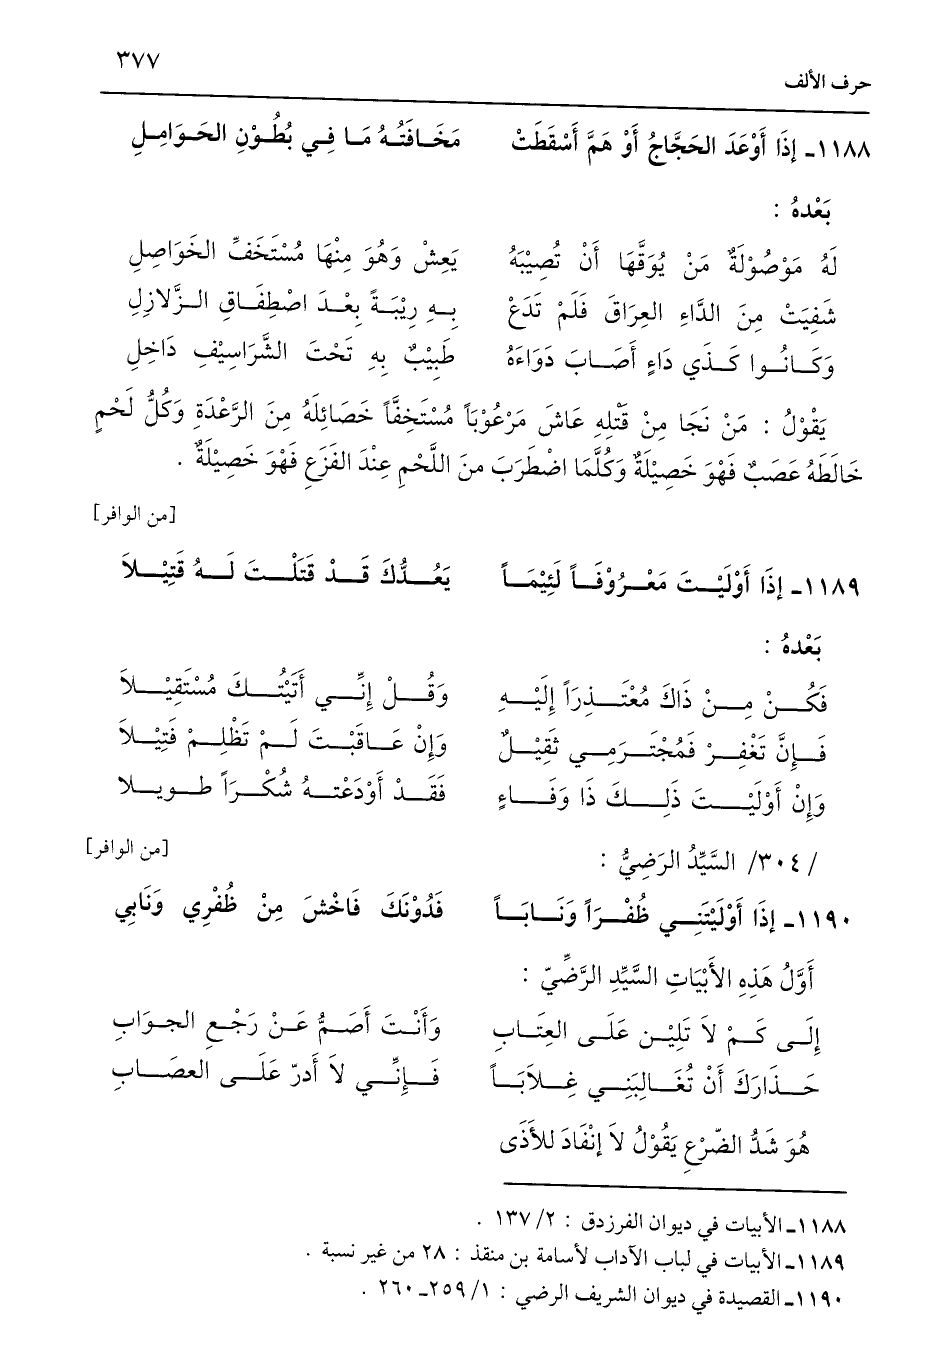 ٣٧٧
حرف الألف
١١٨٨ـ إذَا أَوْعَدَ الحَجَّاجُ أَوْ هَمَّ أَسْقَطَتْ مَخَافَتُهُ مَا فِي بُطُوْنِ الحَوَامِلِ
بَعْدهُ :
لَهُ مَوْصُوْلَةٌ مَنْ يُوَقَّهَا أَنْ تُصِيْبَهُ يَعِشْ وَهُوَ مِنْهَا مُسْتَخَفِّ الخَوَاصِلِ
شَفِيَتْ مِنَ الدَّاءِ العِرَاقَ فَلَمْ تَدَعْ بِهِ رِيْبَةً بِعْدَ اصْطِفَاقِ الزَّلازِلِ
وَكَانُوا كَذِي دَاءٍ أَصَابَ دَوَاءَهُ طَبِيْبٌ بِهِ تَحْتَ الشَّرَاسِيْفِ دَاخِلِ
يَقْوْلُ : مَنْ نَجَا مِنْ قَتْلِهِ عَاشَ مَرْعُوْبَاً مُسْتَخِفَّاً خَصَائِلَهُ مِنَ الرَّعْدَةِ وَكُلُّ لَحْمٍ
خَالَطَهُ عَصَبٌ فَهْوَ خَصِيْلَةٌ وَكُلَّمَا اضْطَرَبَ منَ اللَّحْمِ عِنْدَ الفَزَعِ فَهْوَ خَصِيْلَةٌ .
[من الوافر]
١١٨٩ـ إذَا أَوْلَيْتَ مَعْرُوْفَاً لَئِيْمَاً يَعُدُّكَ قَدْ قَتَلْتَ لَهُ قَتِيْلاَ
بَعْدهُ :
فَكُنْ مِنْ ذَاكَ مُعْتَذِرَاً إِلَيْهِ وَقُلْ إِنِّي أَتَيْتُكَ مُسْتَقِيْلاَ
فَإِنَّ تَغْفِرْ فَمُجْتَرَمِي ثَقِيْلٌ وَإِنْ عَاقَبْتَ لَمْ تَظْلِمْ فَتِيْلاَ
وَإِنْ أَوْلَيْتَ ذَلِكَ ذَا وَفَاءٍ فَقَدْ أَوْدَعْتهُ شُكْرَاً طويلا
/٣٠٤/ السَّيِّدُ الرَضِيُّ : [من الوافر]
١١٩٠ـ إذَا أَوْلَيْتَنِي ظُفْرَاً وَنَابَاً فَدُوْنَكَ فَاخْشَ مِنْ ظُفْرِي وَنَابِي
أَوَّلُ هَذِهِ الأَبْيَاتِ السَّيِّدِ الرَّضِّيّ :
إلَى كَمْ لاَ تَلِيْن عَلَى العِتَابِ وَأَنْتَ أَصَمُّ عَنْ رَجْعِ الجوَابِ
حَذَارَكَ أَنْ تُغَالِبَنِي غِلاَبَاً فَإِنِّي لاَ أَدرّ عَلَى العصَابِ
هُوَ شَدُّ الضّرْعِ يَقُوْلُ لاَ إنْفَادَ للأَذَى
١١٨٨ـ الأبيات في ديوان الفرزدق : ١٣٧/٢ .
١١٨٩ـ الأبيات في لباب الآداب لأسامة بن منقذ : ٢٨ من غير نسبة .
١١٩٠ـ القصيدة في ديوان الشريف الرضي : ٢٥٩/١ـ٢٦٠ .